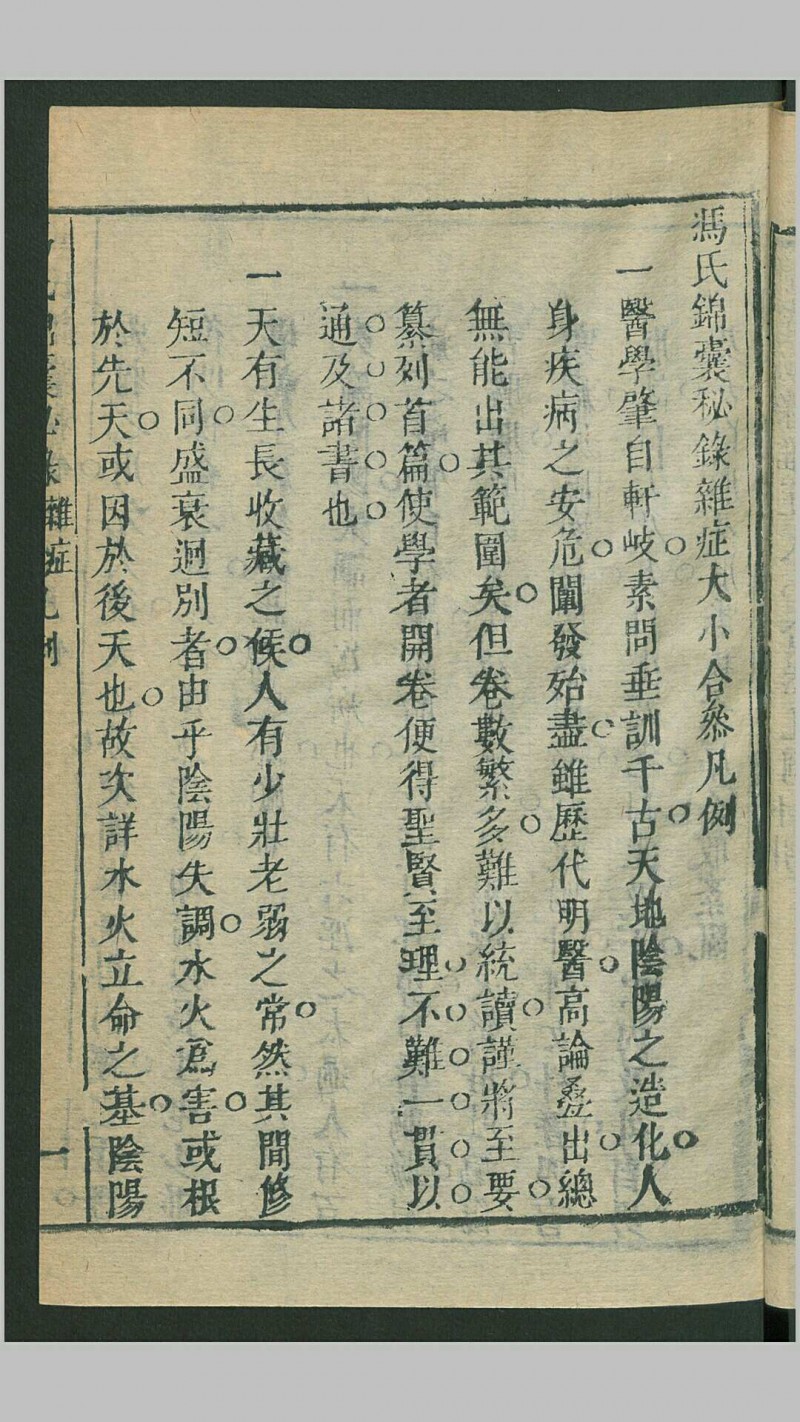 馮氏錦囊秘錄雜症大小合叅凡例
一醫學肇自軒岐素問垂訓千古天地陰陽之造化人
身疾病之安危闡發殆盡雖歷代明醫高論叠出總
無能出其範圍矣但卷數繁多難以統讀謹將至要
纂列首篇使學者開卷便得聖賢至理不難一貫以
通及諸書也
一天有生長收藏之候人有少壯老弱之常然其間修
短不同盛衰迥別者由乎陰陽失調水火爲害或根
於先天或因於後天也故次詳水火立命之基陰陽
雜症
一